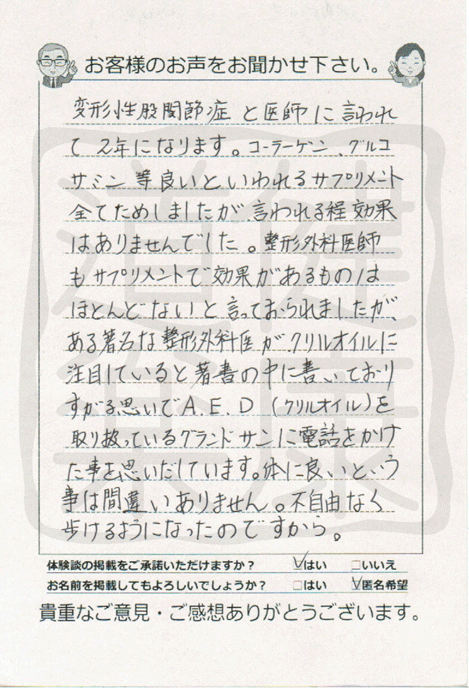 お客様のお声をお聞かせ下さい。
変形性股関節症と医師に言われ
て2年になります。コーラーゲン、グルコ
サミン等良いといわれるサプリメント
全てためしましたが言われる程効果
はありませんでした。整形外科医師
もサプリメントで効果があるものは
ほとんどないと言っておられましたが、
ある著名な整形外科医がクリルオイルに
注目していると著書の中に書いており
すがる思いでA.E.D(クリルオイル)を
取り扱っているグランドサンに電話をかけ
た事を思いだしています。体に良いという
事は間違いありません。不自由なく
歩けるようになったのですから。
体験談の掲載をご承諾いただけますか？ ☑はい □いいえ
お名前を掲載してもよろしいでしょうか？ □はい ☑匿名希望
貴重なご意見・ご感想ありがとうございます。